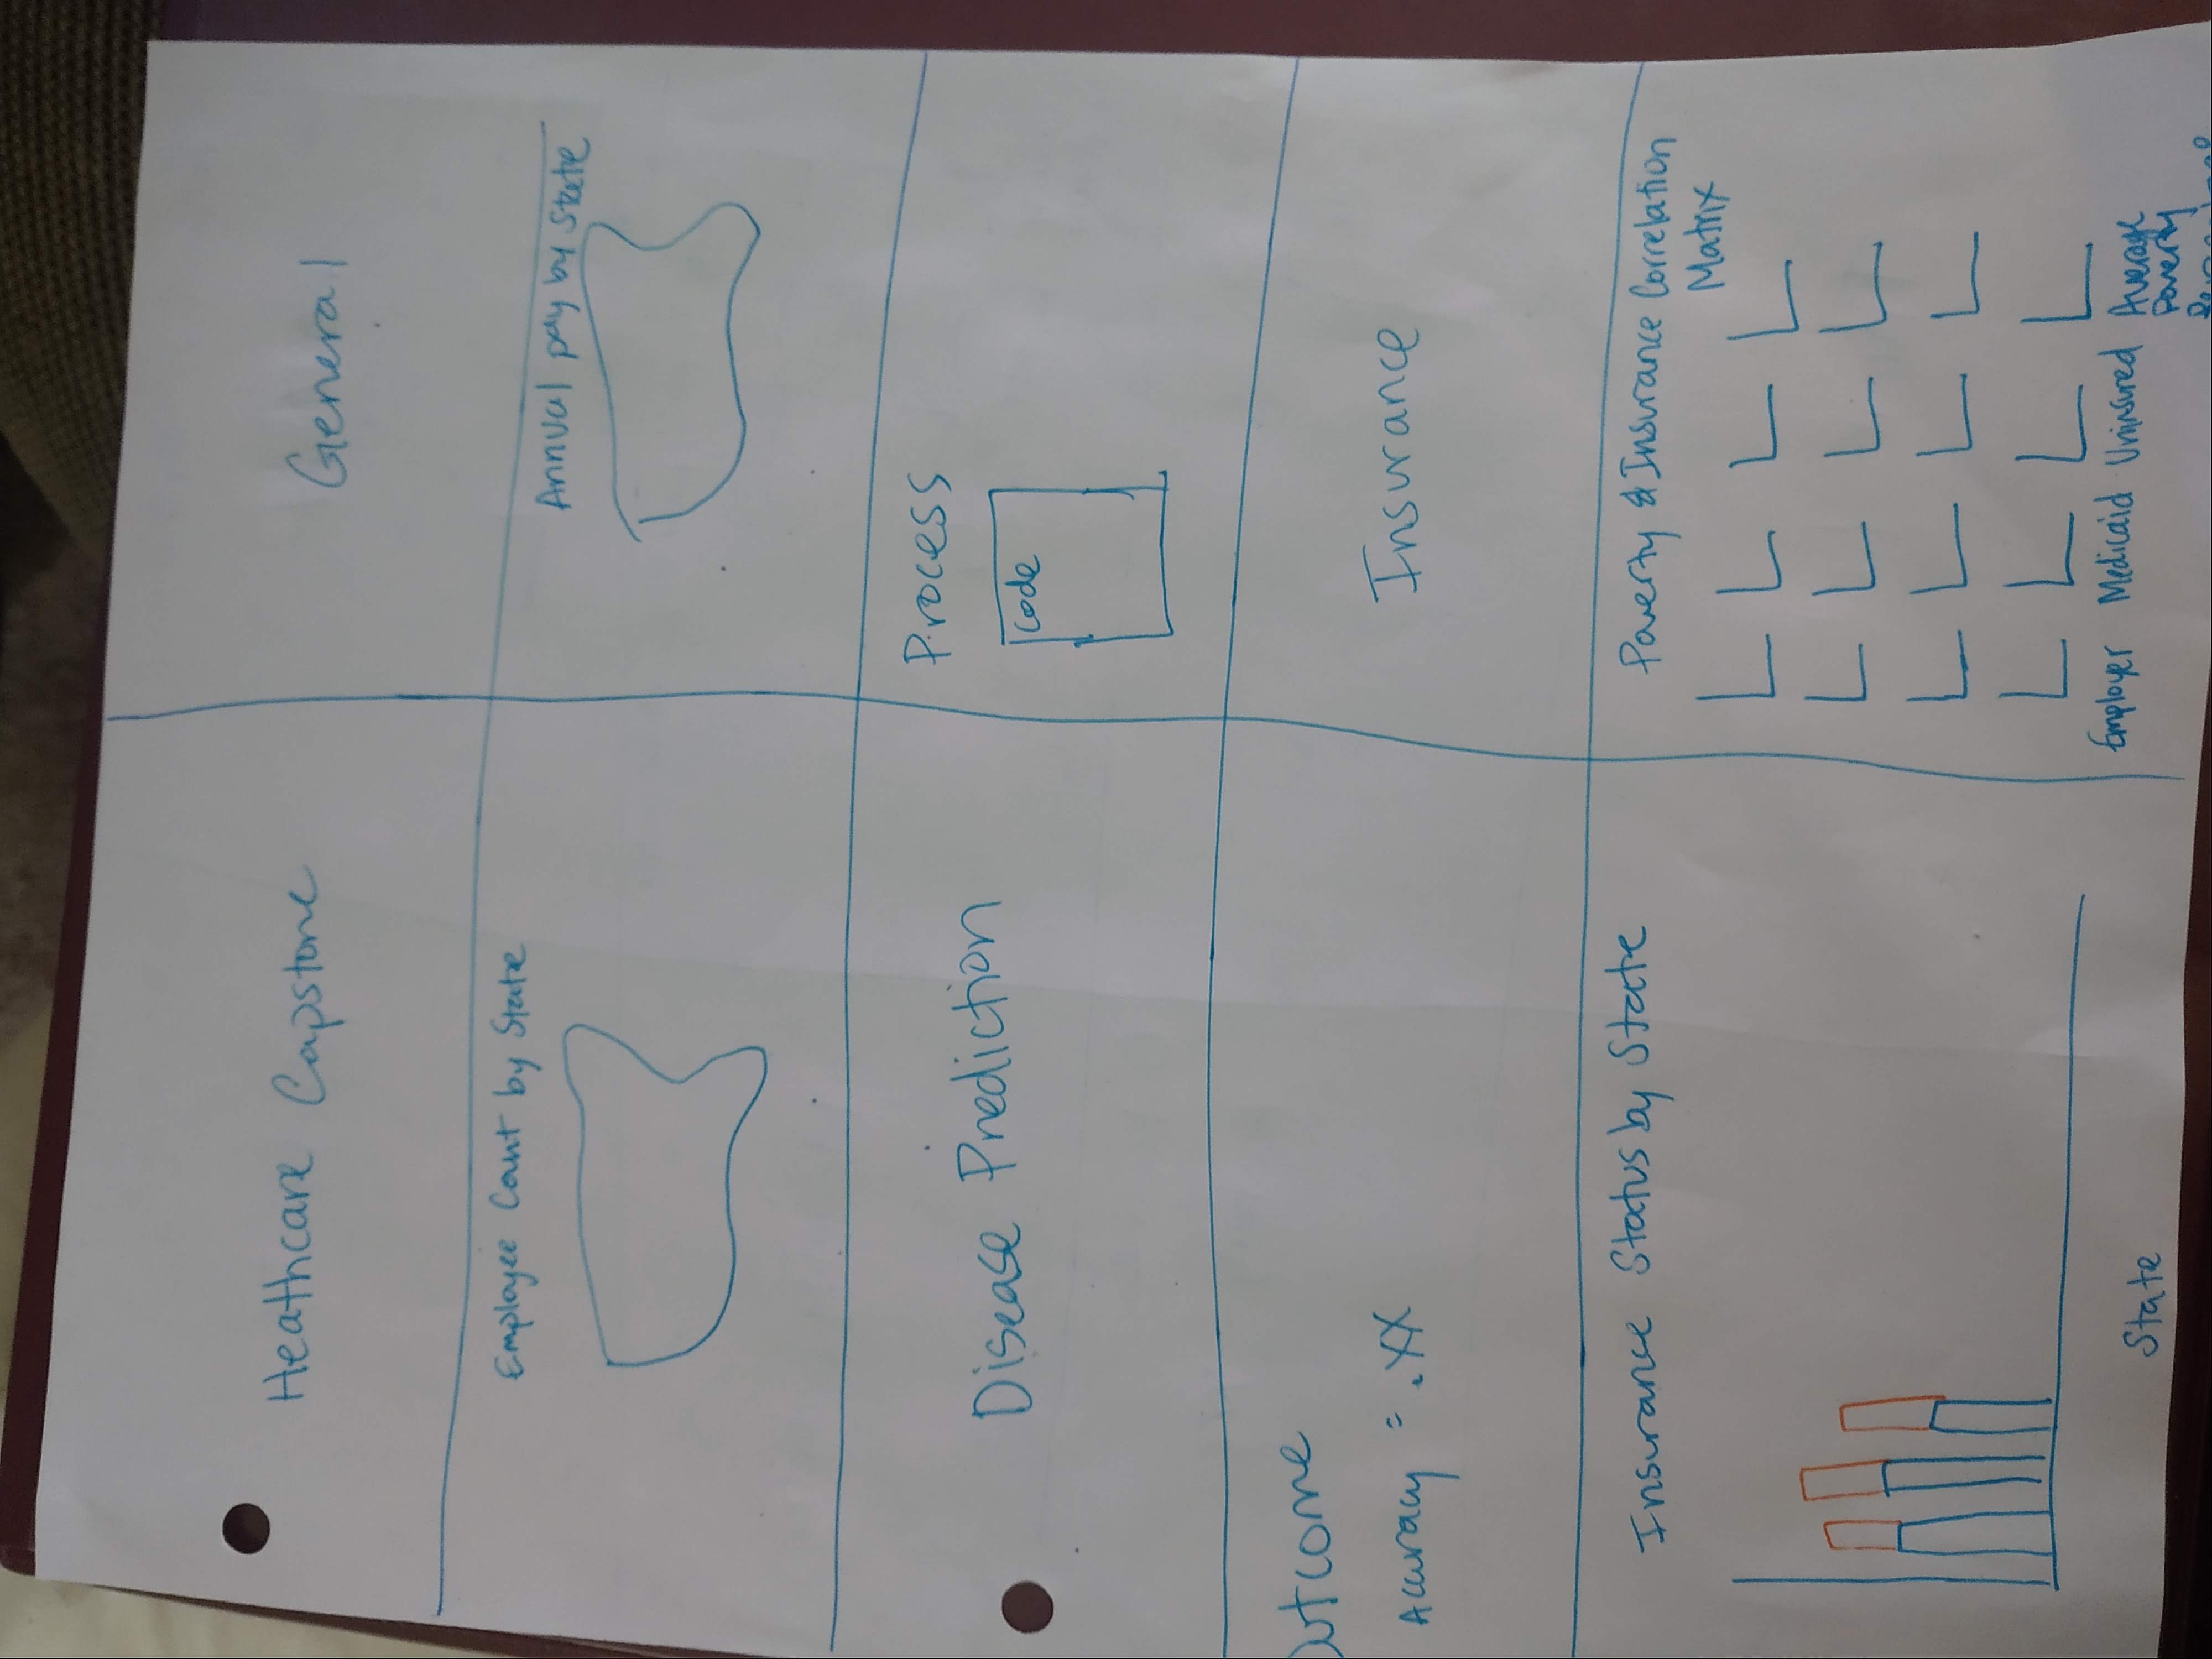 Heathcare Capstone
General
Employee Count by State
Annual pay by State
Disease Prediction
Process
Code
Outcome
Accuracy = .XX
Insurance
Insurance Status by State
State
Poverty & Insurance Correlation
Matrix
Employer Medicaid Uninsured Average
Poverty